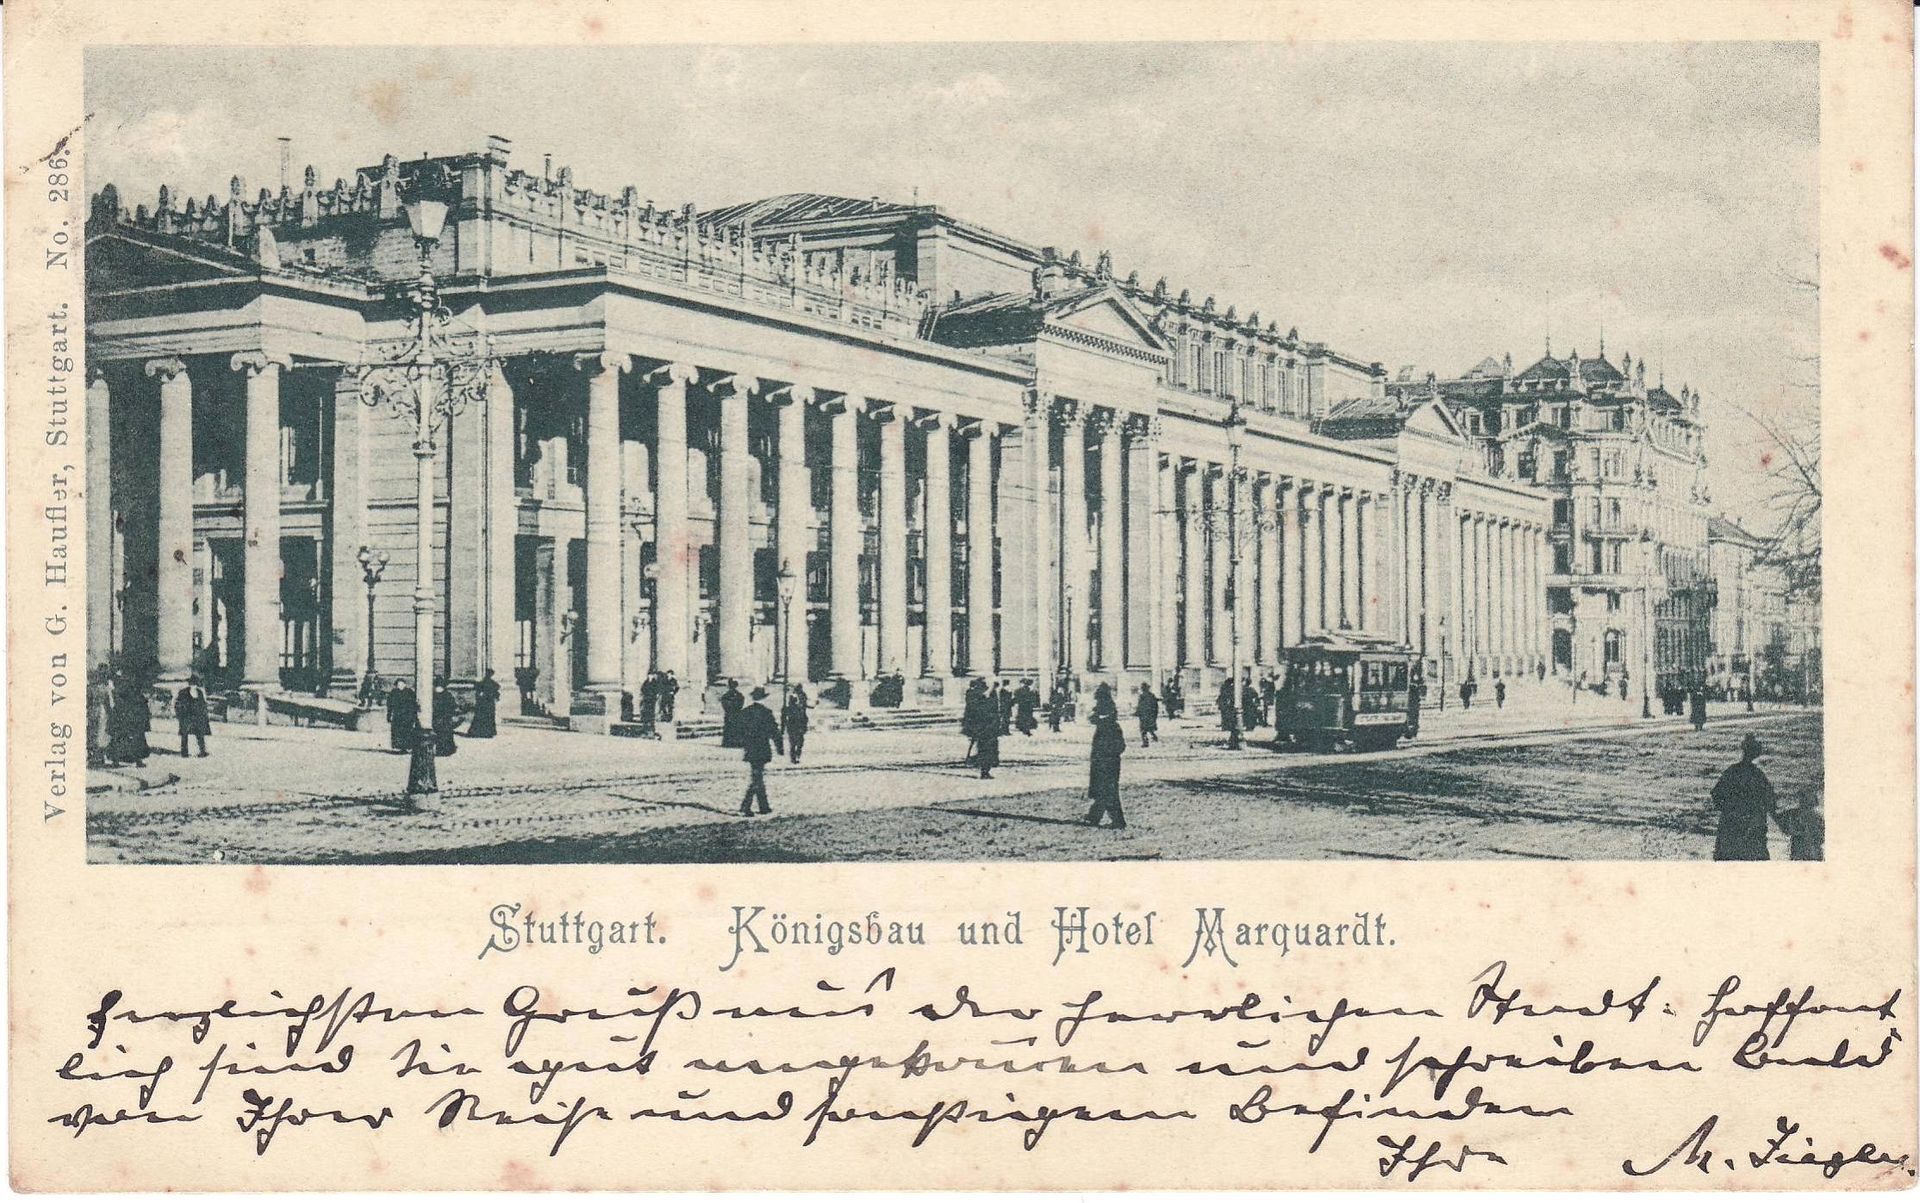 Verlag von G. Haufler, Stuttgart. No. 286.
Stuttgart. Königsbau und Hotel Marquardt.
Herzlichsten Gruß aus der herrlichen Stadt. Hoffent
lich sind Sie gut angekommen und schreiben bald
von Ihrer Reise und sonstigem Befinden
Ihre M. Ziegler.